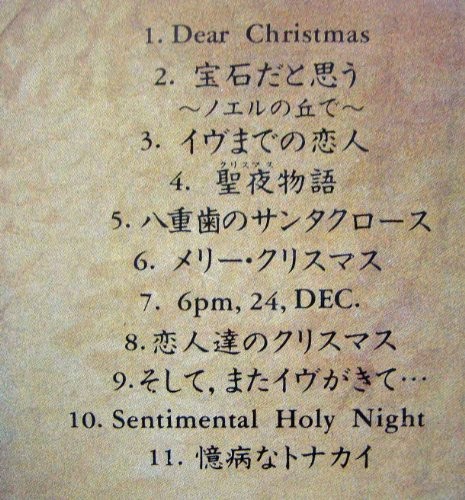 1. Dear Christmas
2. 宝石だと思う
〜ノエルの丘で〜
3. イヴまでの恋人
クリスマス
4. 聖夜物語
5. 八重歯のサンタクロース
6. メリー・クリスマス
7. 6pm, 24, DEC.
8. 恋人達のクリスマス
9. そして, またイヴがきて…
10. Sentimental Holy Night
11. 憶病なトナカイ